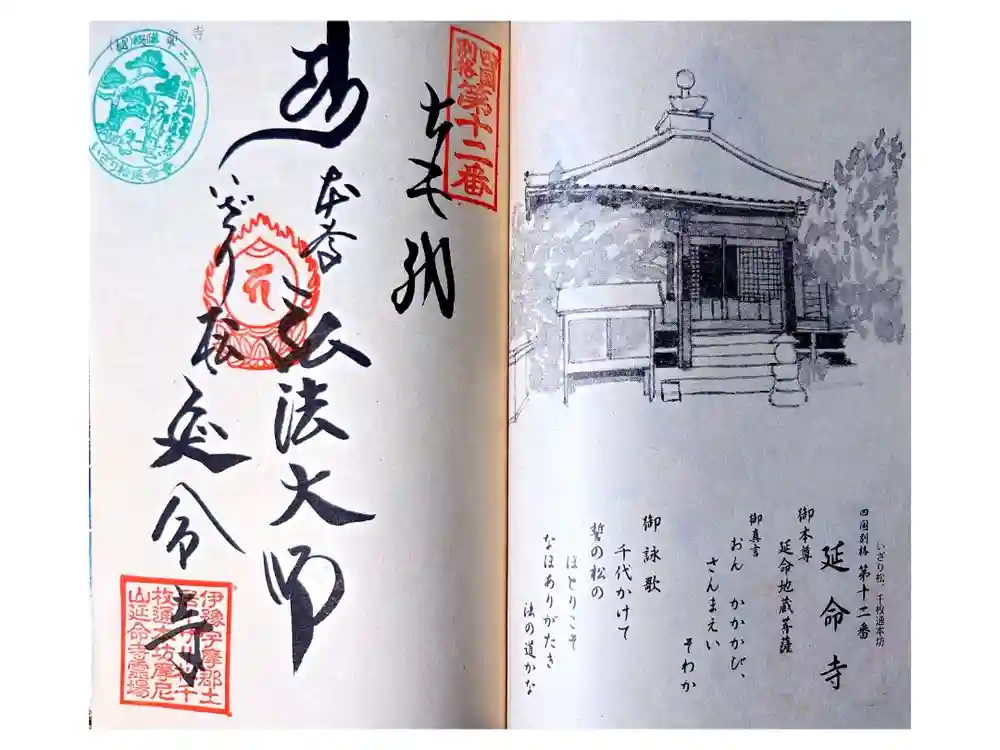 いざり松、千枚通本坊
四国別格 第十二番
延命寺
御本尊
延命地蔵菩薩
御真言
おん かかかび、
さんまえい
そわか
御詠歌
千代かけて
誓の松の
ほとりこそ
なほありがたき
法の道かな
四国
別格
第十二番
弘法大師
いざり松
延命寺
いざり松延命寺
伊豫宇摩郡土
枚通本坊摩尼
山延命寺霊場